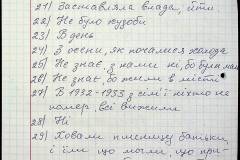 21) Заставляла влада, йти
22) Не було худоби
23) В день
24) З осени, як почалися холода
25) Не знає, з нами ні, бо була мал
26) Не знає, бо жили в місті
27) В 1932-1933 з сім'ї ніхто не
помер, всі вижили
28) Ні
29) Ховали пшеницю батьки
і їли що могли, що при